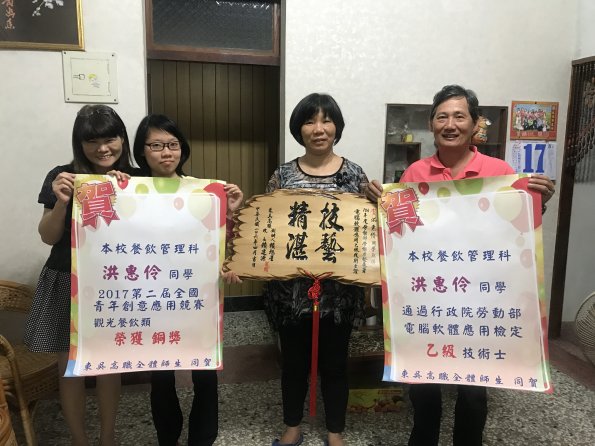 賀
本校餐飲管理科
洪惠伶 同學
2017第二屆全國
青年創意應用競賽
觀光餐飲類
榮獲 銅獎
東吳高職全體師生 同賀
技藝
精湛
賀
本校餐飲管理科
洪惠伶 同學
通過行政院勞動部
電腦軟體應用檢定
乙級 技術士
東吳高職全體師生 同賀
17